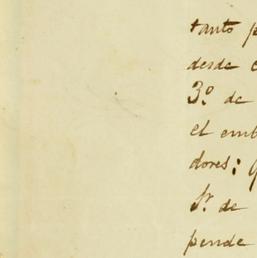 tanto p
desde
3º de
el emb
dores:
Sr. de
pende